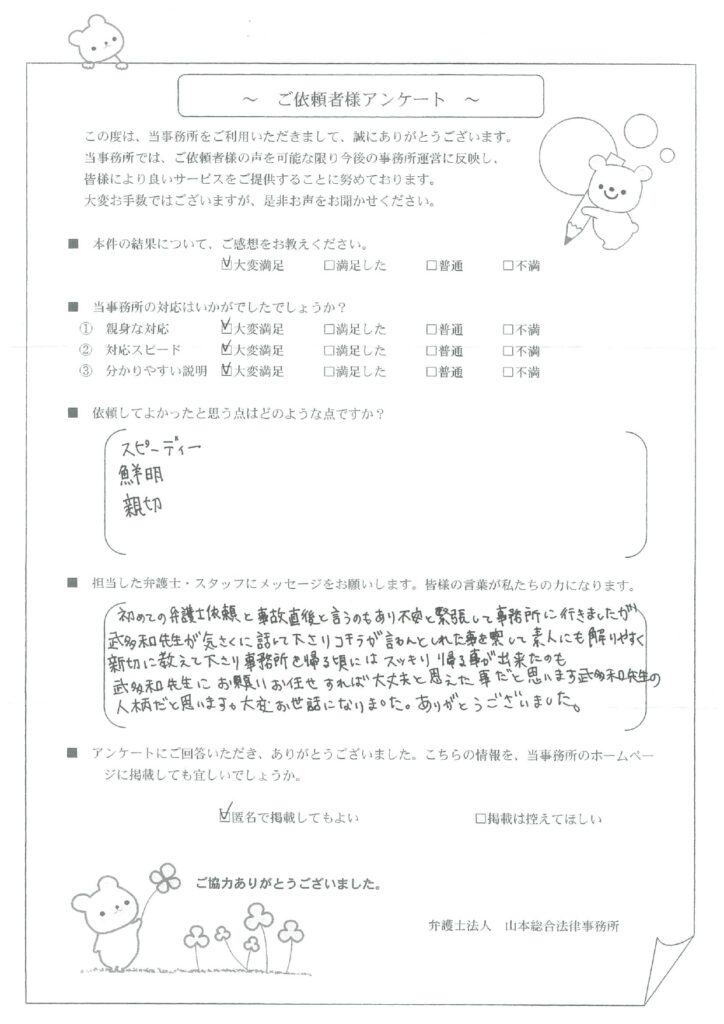 ～ ご依頼者様アンケート ～
この度は、当事務所をご利用いただきまして、誠にありがとうございます。
当事務所では、ご依頼者様の声を可能な限り今後の事務所運営に反映し、
皆様により良いサービスをご提供することに努めております。
大変お手数ではございますが、是非お声をお聞かせください。
■ 本件の結果について、ご感想をお教えください。
☑大変満足 □満足した □普通 □不満
■ 当事務所の対応はいかがでしたでしょうか？
① 親身な対応 ☑大変満足 □満足した □普通 □不満
② 対応スピード ☑大変満足 □満足した □普通 □不満
③ 分かりやすい説明 ☑大変満足 □満足した □普通 □不満
■ 依頼してよかったと思う点はどのような点ですか？
スピーディー
鮮明
親切
■ 担当した弁護士・スタッフにメッセージをお願いします。皆様の言葉が私たちの力になります。
初めての弁護士依頼と事故直後と言うのもあり不安と緊張して事務所に行きましたが
武多和先生が気さくに話して下さりコチラが言わんとしれた事を察して素人にも解りやすく
親切に教えて下さり事務所を帰る頃にはスッキリ帰る事が出来たのも
武多和先生にお願いお任せすれば大丈夫と思えた事だと思います武多和先生の
人柄だと思います。大変お世話になりました。ありがとうございました。
■ アンケートにご回答いただき、ありがとうございました。こちらの情報を、当事務所のホームペー
ジに掲載しても宜しいでしょうか。
☑匿名で掲載してもよい □掲載は控えてほしい
ご協力ありがとうございました。
弁護士法人 山本総合法律事務所